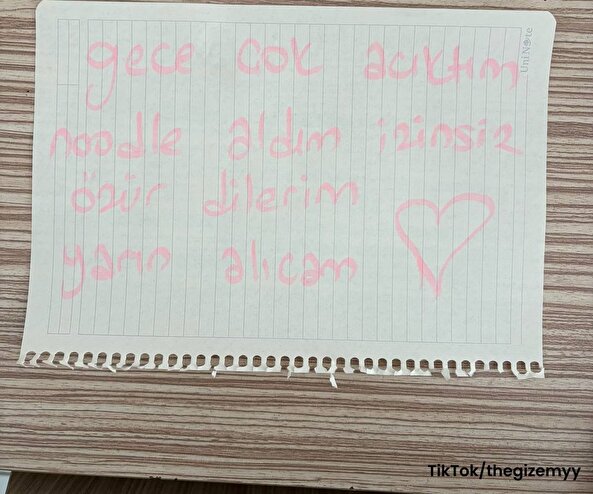 Uni Note
gece cok acıktım
noodle aldım izinsiz
özür dilerim
yarın alıcam
TikTok/thegizemyy